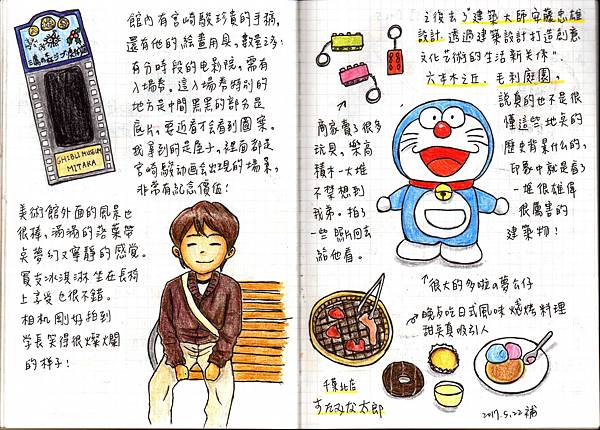 館內有宮崎駿珍貴的手稿,
還有他的繪畫用具,數量多!
有分時段的電影院,需有
入場券。這入場券特別的
地方是中間黑黑的部分是
底片,要近看才會看到圖案。
我拿到的是產土,裡面都是
宮崎駿动画会出現的場景,
非常有記念價值!
GHIBLI MUSEUM
MITAKA
美術館外面的風景也
很棒,滿滿的落葉帶
矣夢幻又寧靜的感覺。
買支冰淇淋坐在長椅
上享受也很不錯。
相机剛好拍到
学長笑得很燦爛
的樣子!
之後去了"建築大師安藤忠雄
設計,透過建築設計打造創意
文化艺術的生活新关係".
六本木之丘、毛利庭園,
說真的也不是很
懂這些地矣的
歷史背是什么的,
印象中就是看了
一堆很雄偉
很厲害的
建築物!
商家賣了很多
玩具,樂高
積木一大堆
不禁想到
我弟。拍了
一些照片回去
給他看。
很大的多啦a夢公仔
晚歺吃日式風味燒烤料理
甜矣真吸引人
千葉北店
すたみな太郎
2017.5.22補